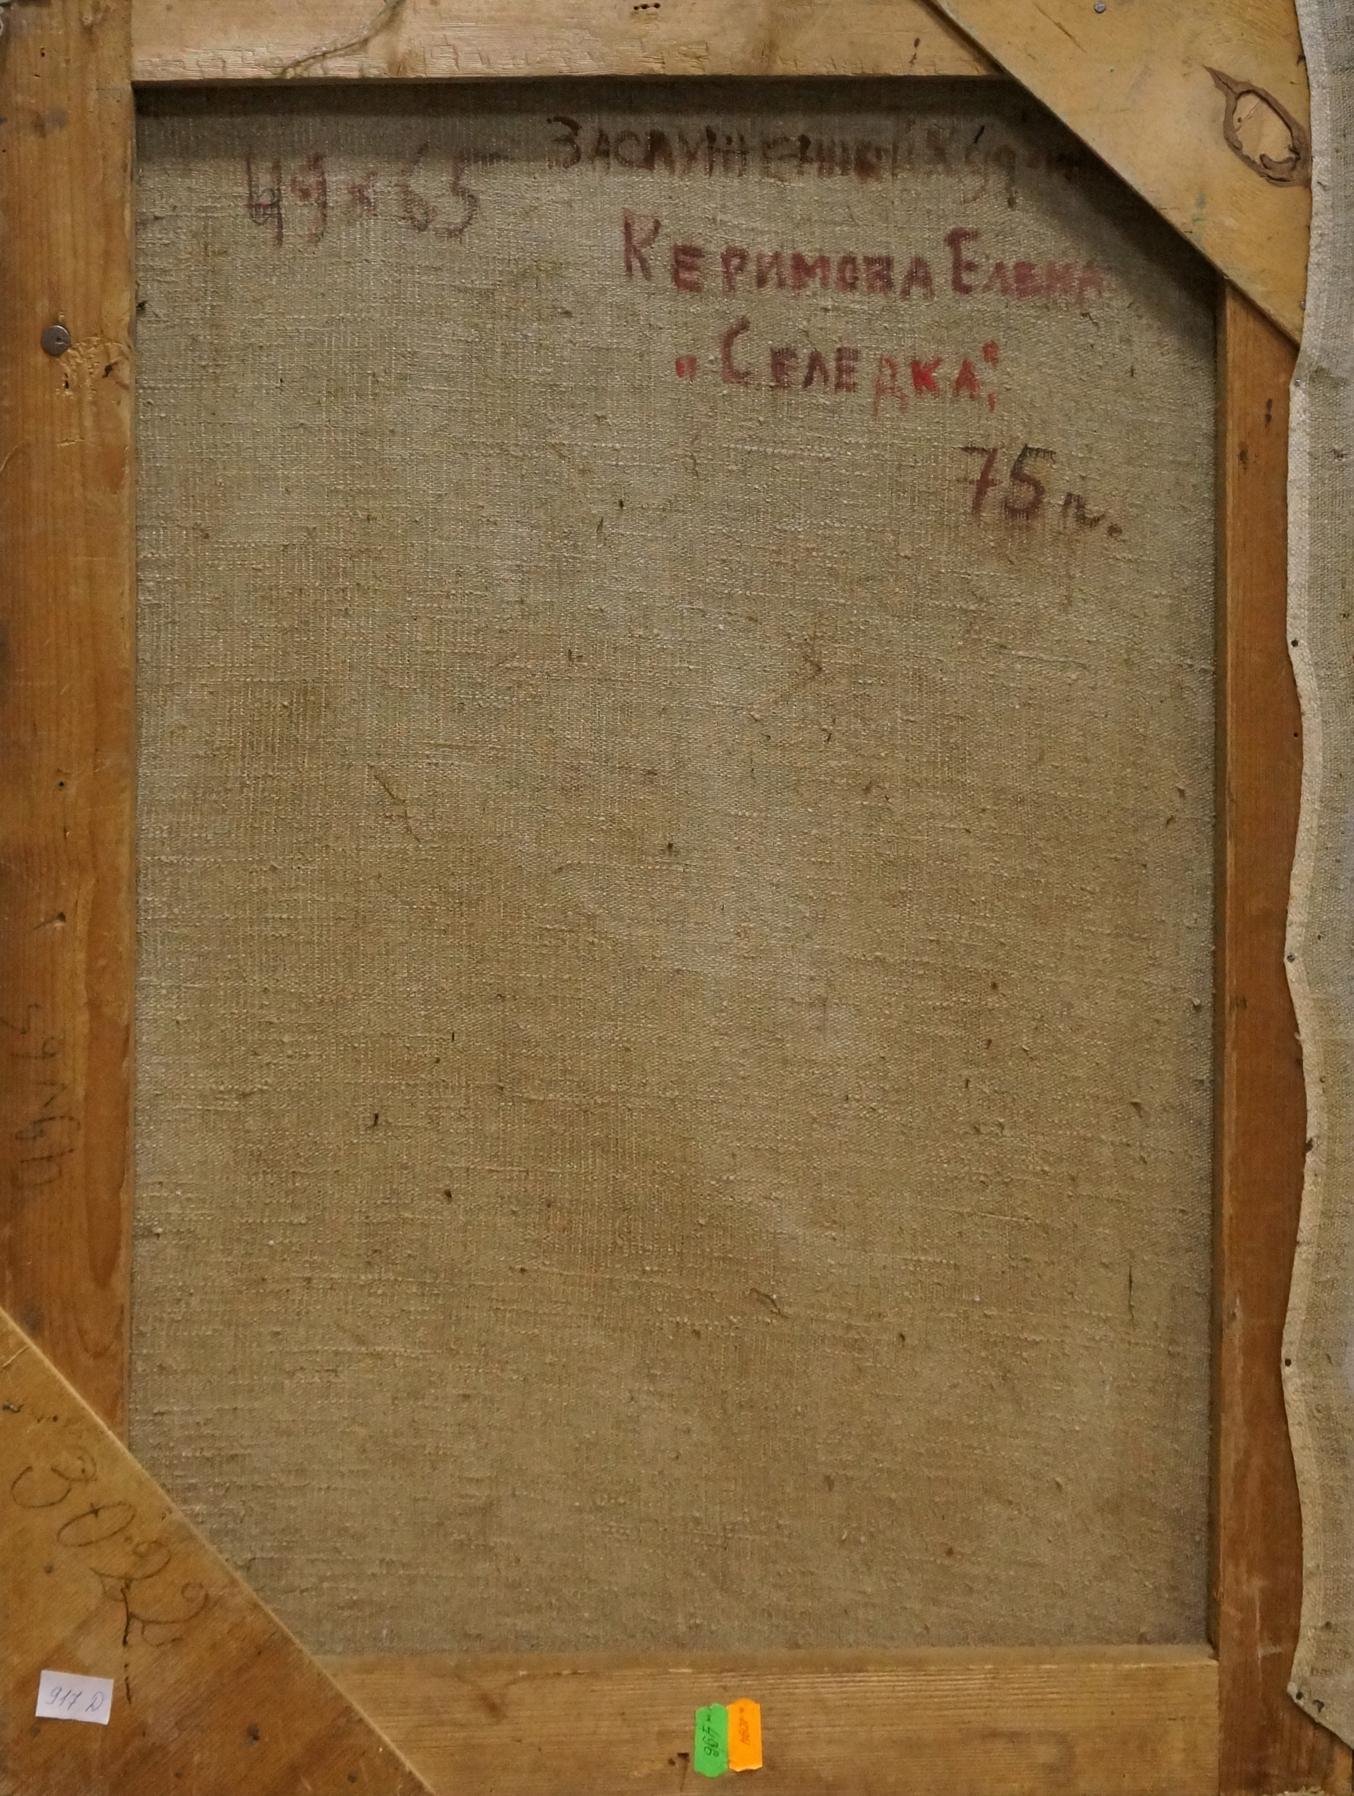 49 x 65
ЗАСЛУЖЕННЫЙ
КЕРИМОВА ЕЛЕНА
„СЕЛЕДКА“,
75 г.
3022
917 D